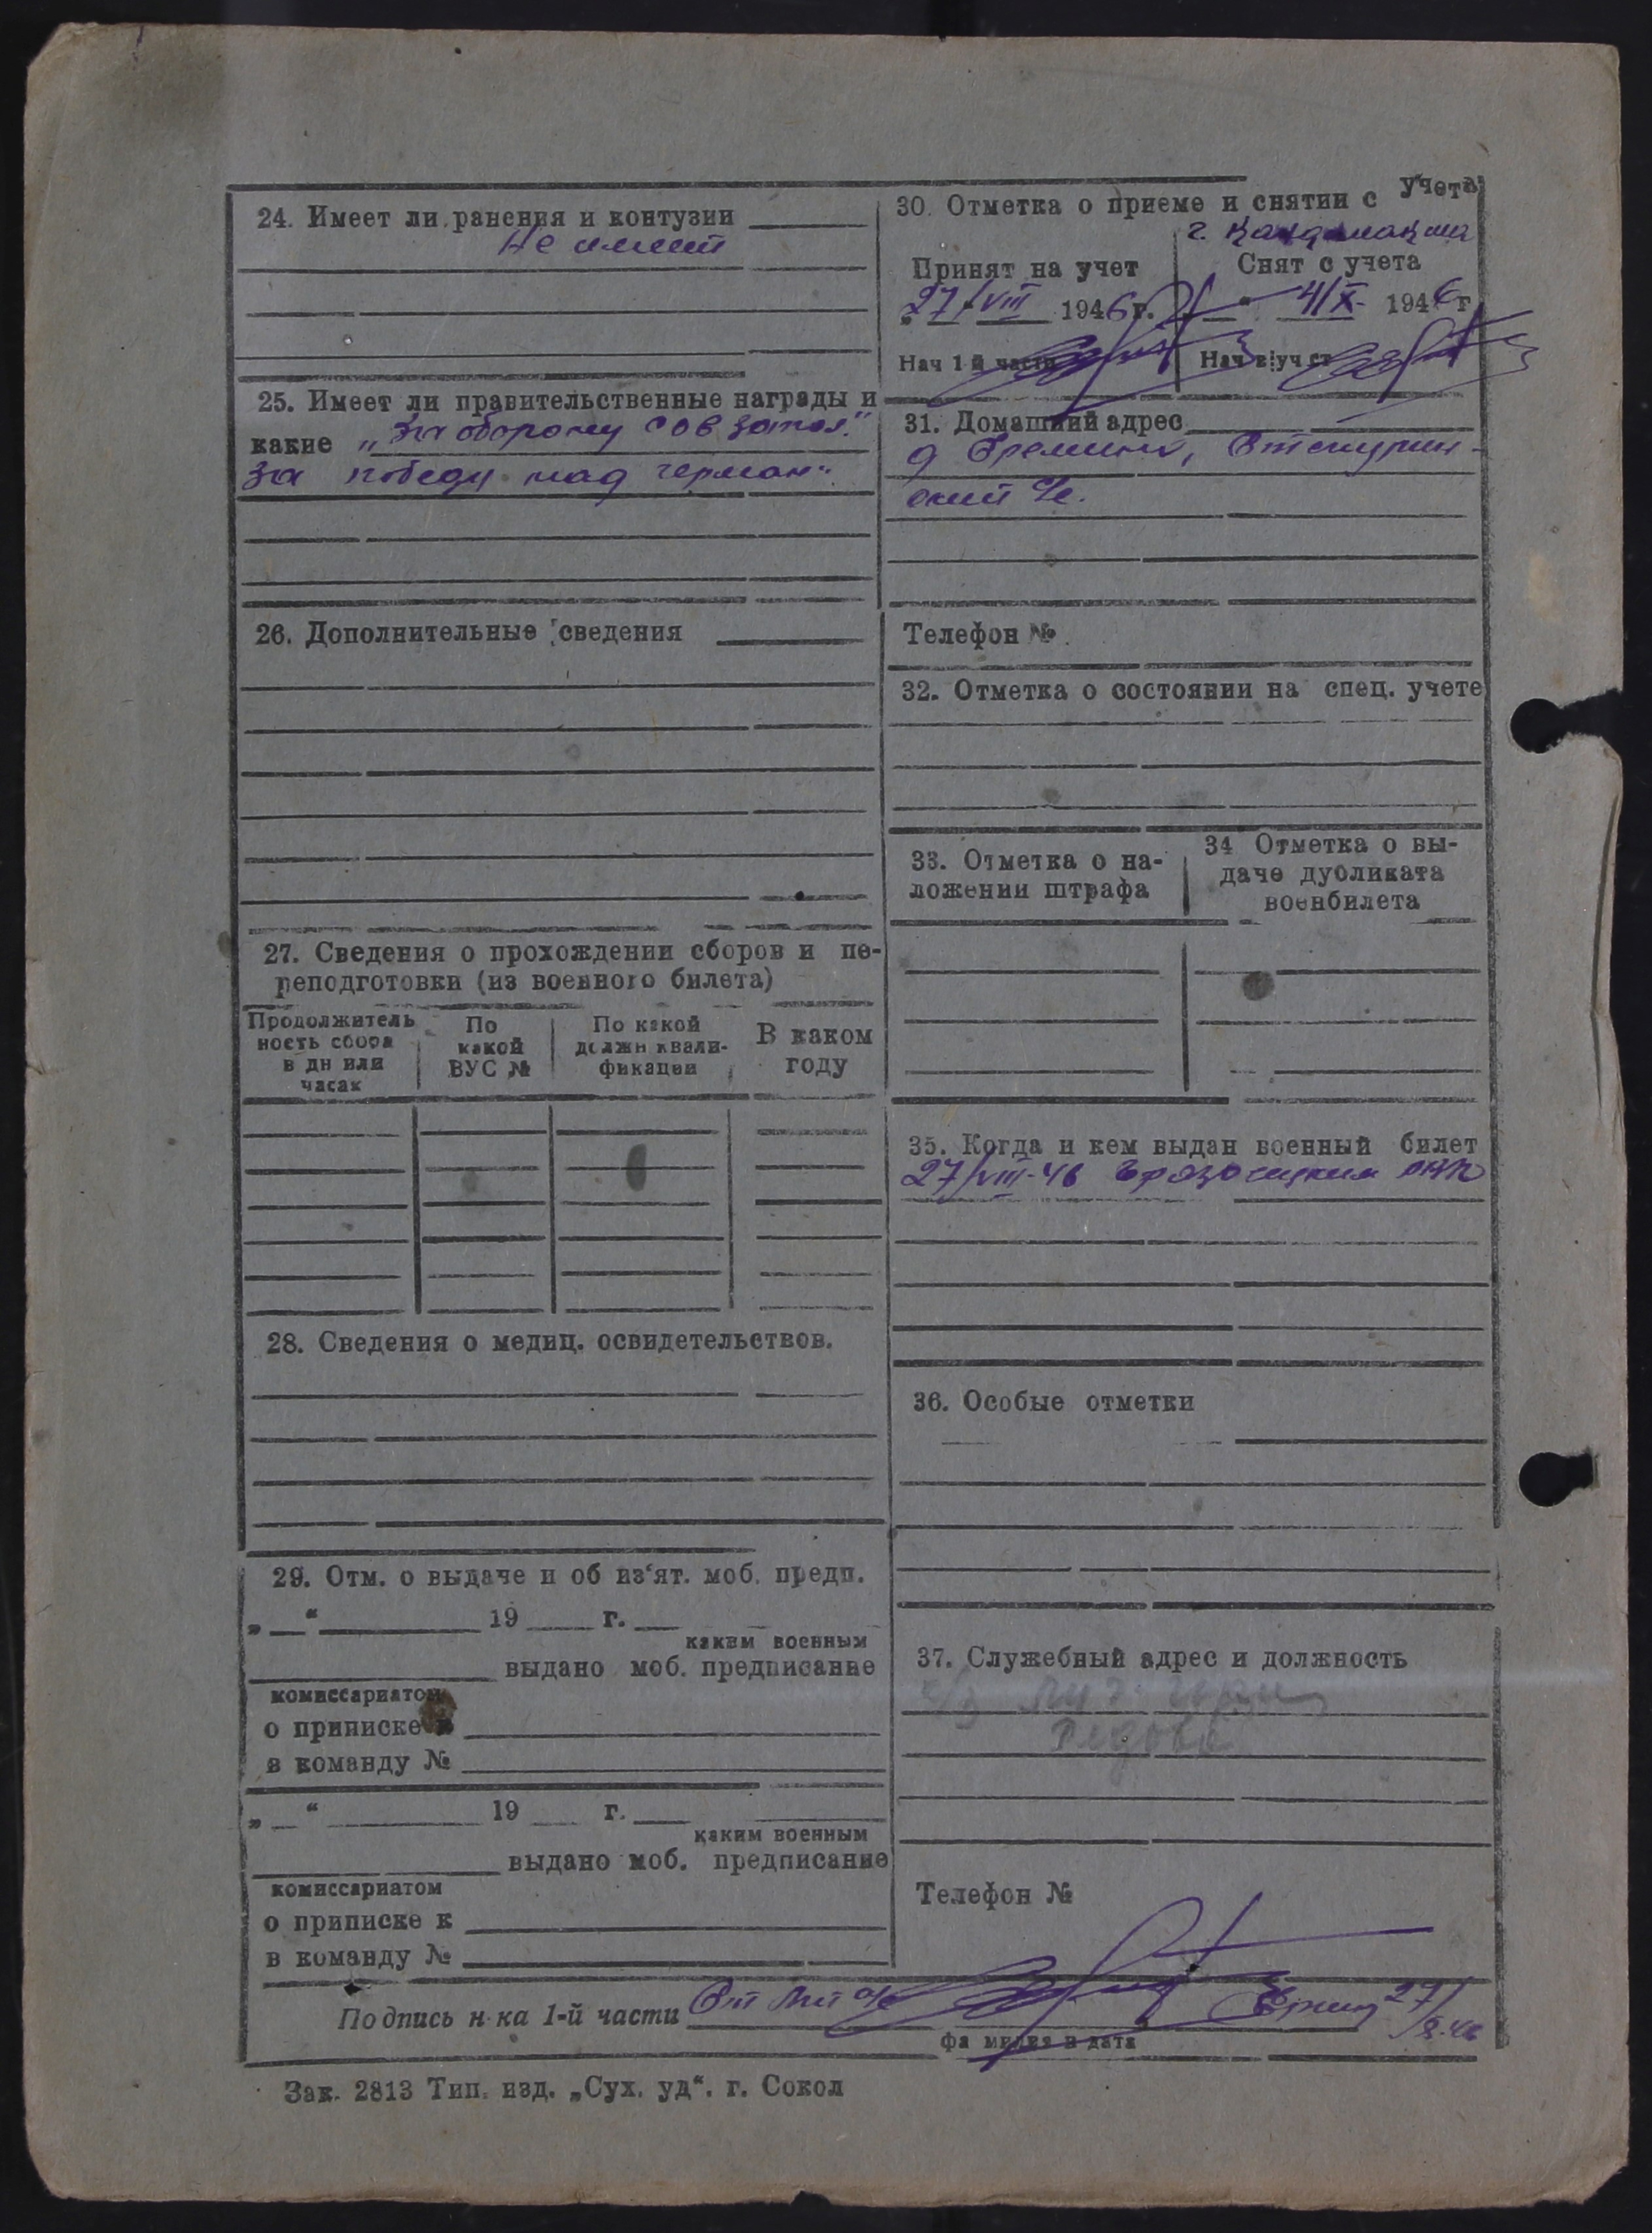 24. Имеет ли ранения и контузии
Не имеет
25. Имеет ли правительственные награды и
какие „За оборону сов запол."
За победу над герман"
26. Дополнительные сведения
27. Сведения о прохождении сборов и пе-
реподготовки (из военного билета)
Продолжитель
ность сбора
в дн или
часах
По
какой
ВУС №
По какой
должн квали-
фикации
В каком
году
28. Сведения о медиц. освидетельствов.
29. Отм. о выдаче и об из‘ят. моб. предп.
„ “ 19 г.
каким военным
выдано моб. предписание
комиссариатом
о приписке к
в команду №
„ “ 19 г.
каким военным
выдано моб. предписание
комиссариатом
о приписке к
в команду №
30. Отметка о приеме и снятии с учета
г. Кандалакша
Принят на учет
27/VIII 1946 г.
Нач 1 й части
Снят с учета
4/X 1946 г
Нач в|уч ст
31. Домашний адрес
д Еремино,
ский с/с.
Телефон №
32. Отметка о состоянии на спец. учете
33. Отметка о на-
ложении штрафа
34 Отметка о вы-
даче дубликата
военбилета
35. Когда и кем выдан военный билет
27/VIII-46 Грязовецким РВК
36. Особые отметки
37. Служебный адрес и должность
Телефон №
Подпись н-ка 1-й части Ст л-т а/с 27/8.46
фамилия и дата
Зак. 2813 Тип. изд. „Сух. уд“. г. Сокол